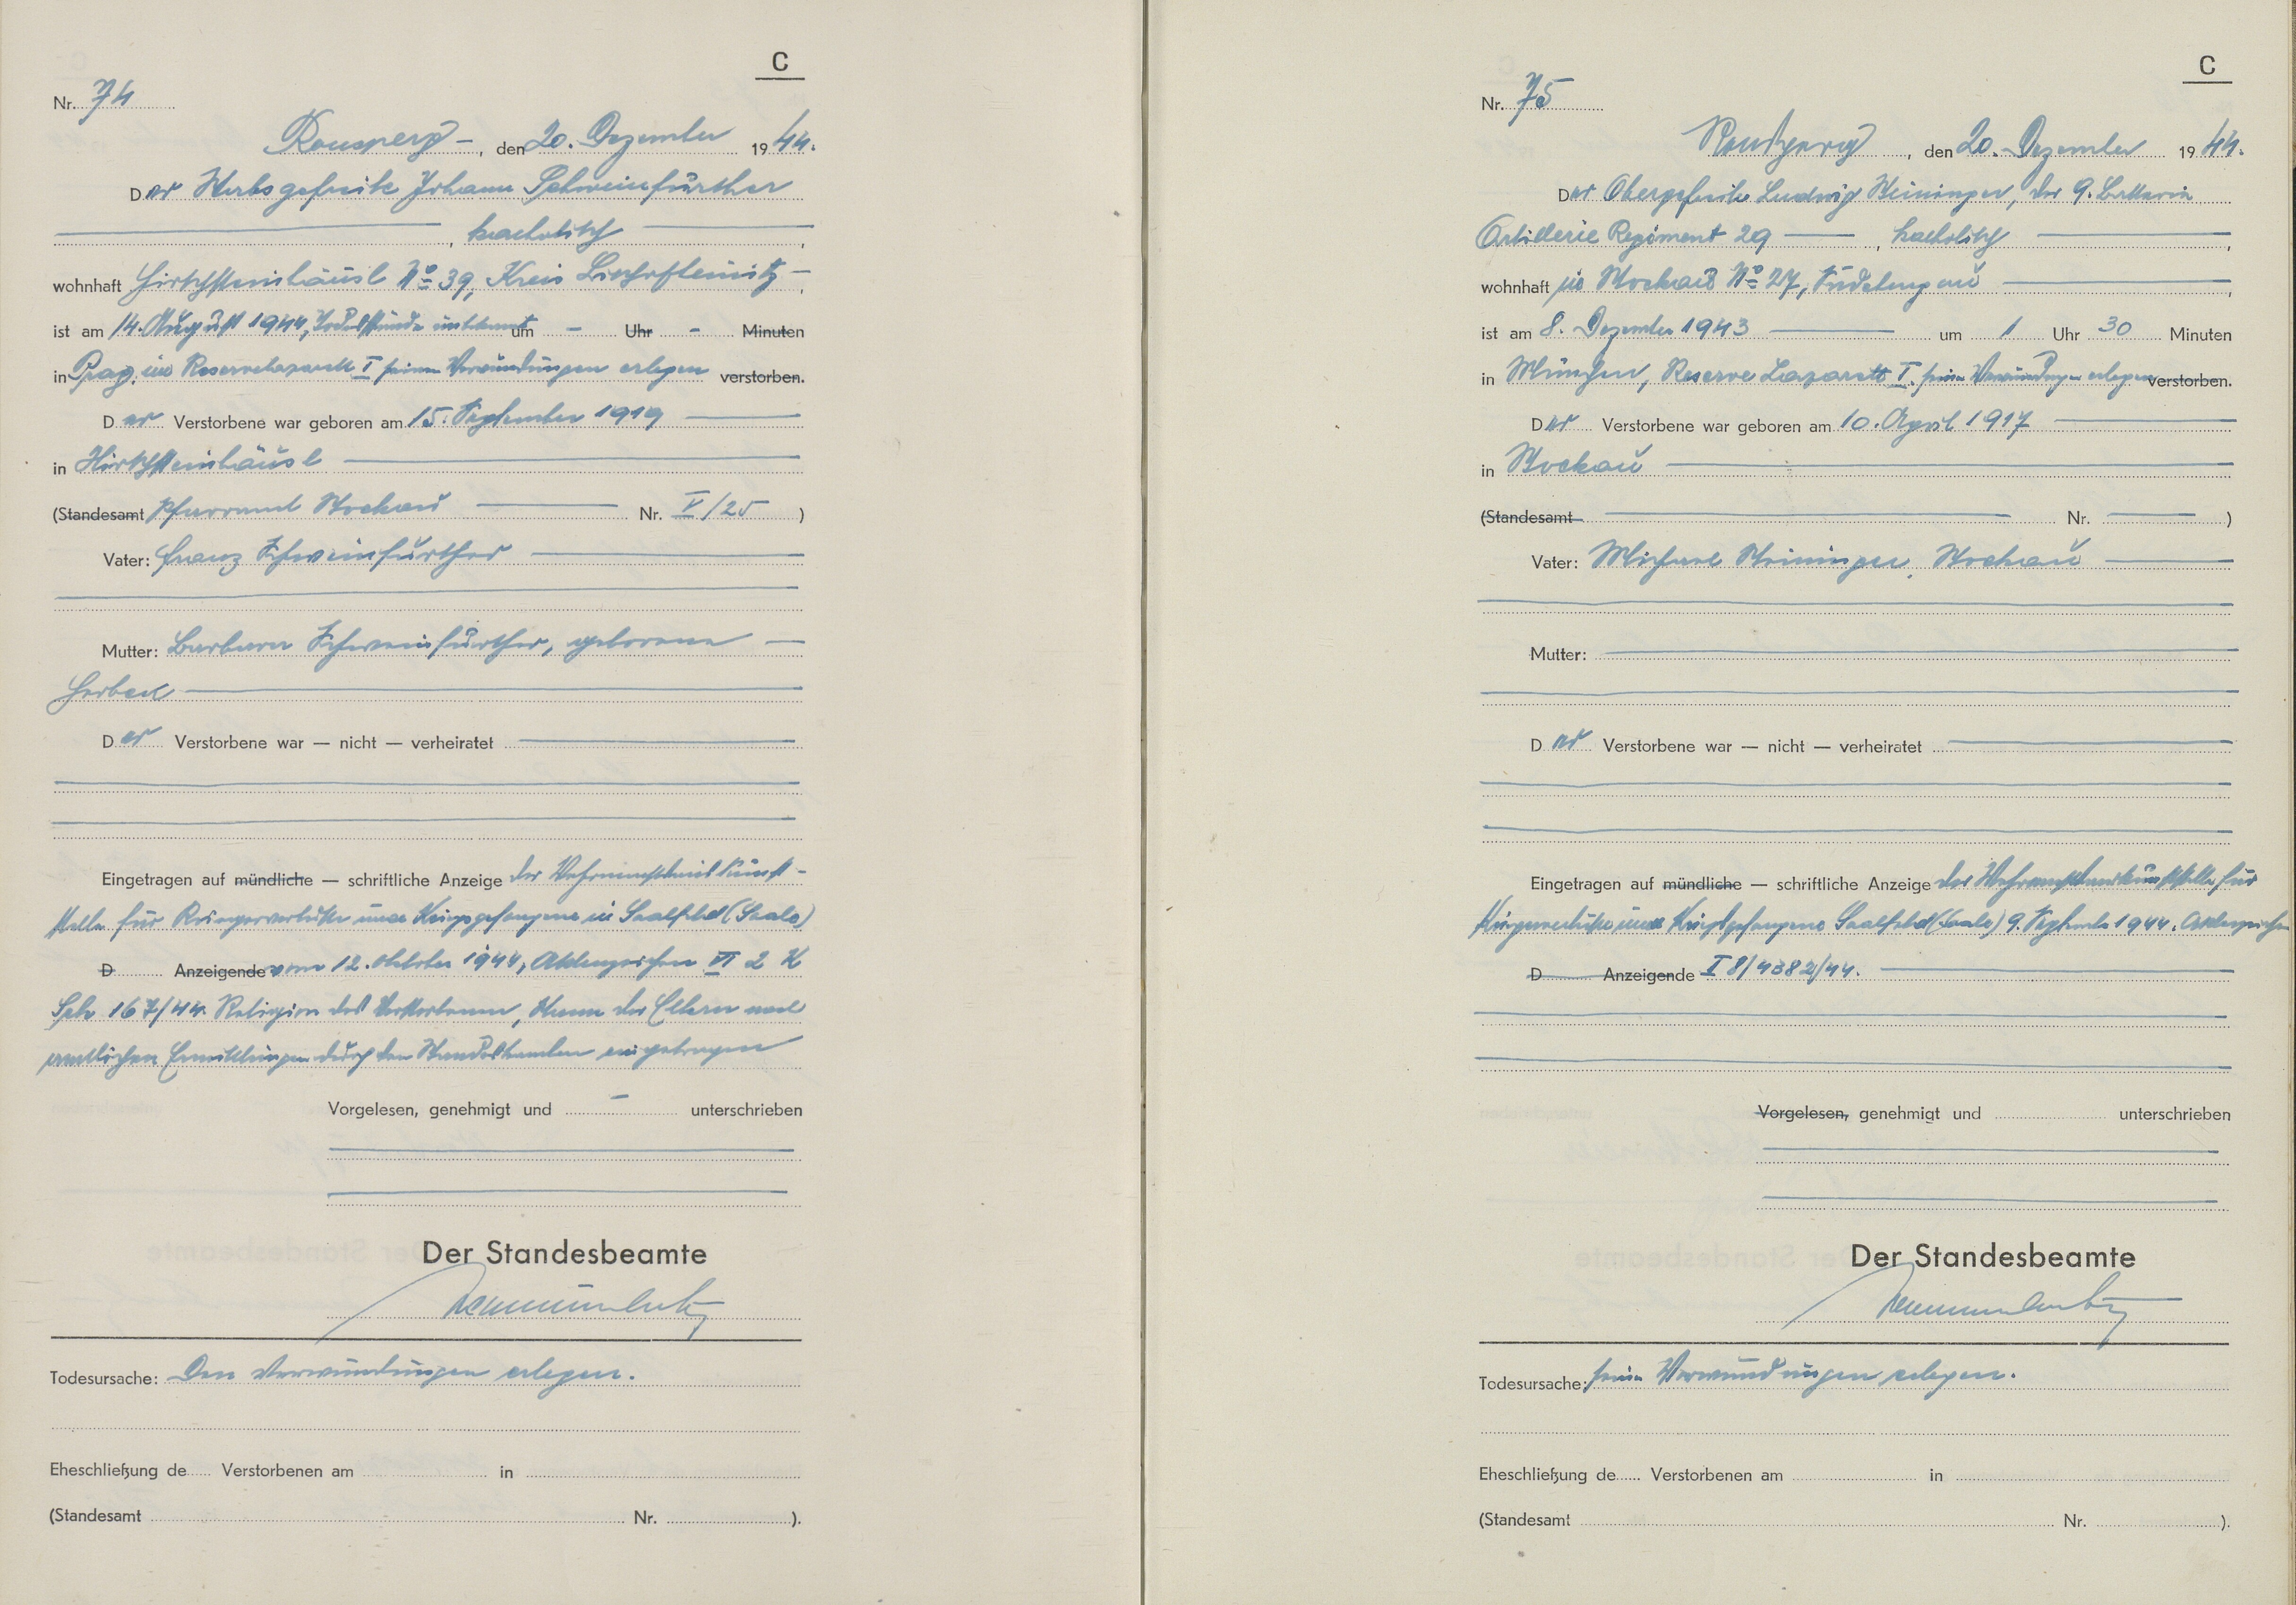 C
Nr. 74
Ronsperg, den 20. Dezember 1944.
Der Stabsgefreite Johann Schweinfurther
, katholisch ,
wohnhaft Hirschsteinhäusl No 39, Kreis Bischofteinitz ,
ist am 14. August 1944, Todesstunde unbekannt um - Uhr - Minuten
in Prag, im Reservelazarett I seinen Verwundungen erlegen verstorben.
Der Verstorbene war geboren am 15. September 1919
in Hirschsteinhäusl
(Standesamt Pfarramt Stockau Nr. V/25 )
Vater: Franz Schweinfurther
Mutter: Barbara Schweinfurther, geborene
Der Verstorbene war — nicht — verheiratet
Eingetragen auf mündliche — schriftliche Anzeige der Wehrmachtauskunft-
stelle für Kriegerverluste und Kriegsgefangene in Saalfeld (Saale)
D Anzeigende vom 12. Oktober 1944, Aktenzeichen VI 2 K
167/44. Religion des Verstorbenen, Namen der Eltern nach
amtlichen Ermittlungen durch den Standesbeamten eingetragen
Vorgelesen, genehmigt und - unterschrieben
Der Standesbeamte
Todesursache: Den Verwundungen erlegen.
Eheschließung de Verstorbenen am in
(Standesamt Nr. ).
C
Nr. 75
Ronsperg, den 20. Dezember 1944.
Der Obergefreite Ludwig Weininger, der 9. Batterie
Artillerie Regiment 29 , katholisch ,
wohnhaft in Stockau No 27, Sudetengau ,
ist am 8. Dezember 1943 um 1 Uhr 30 Minuten
in München, Reserve Lazarett I. seinen Verwundungen erlegen verstorben.
Der Verstorbene war geboren am 10. April 1917
in Stockau
(Standesamt Nr. )
Vater: Michael Weininger, Stockau
Mutter:
Der Verstorbene war — nicht — verheiratet
Eingetragen auf mündliche — schriftliche Anzeige der Wehrmachtauskunftstelle für
Kriegerverluste und Kriegsgefangene Saalfeld (Saale) 9. September 1944. Aktenzeichen
D Anzeigende I 8/4382/44.
Vorgelesen, genehmigt und unterschrieben
Der Standesbeamte
Todesursache: seinen Verwundungen erlegen.
Eheschließung de Verstorbenen am in
(Standesamt Nr. ).